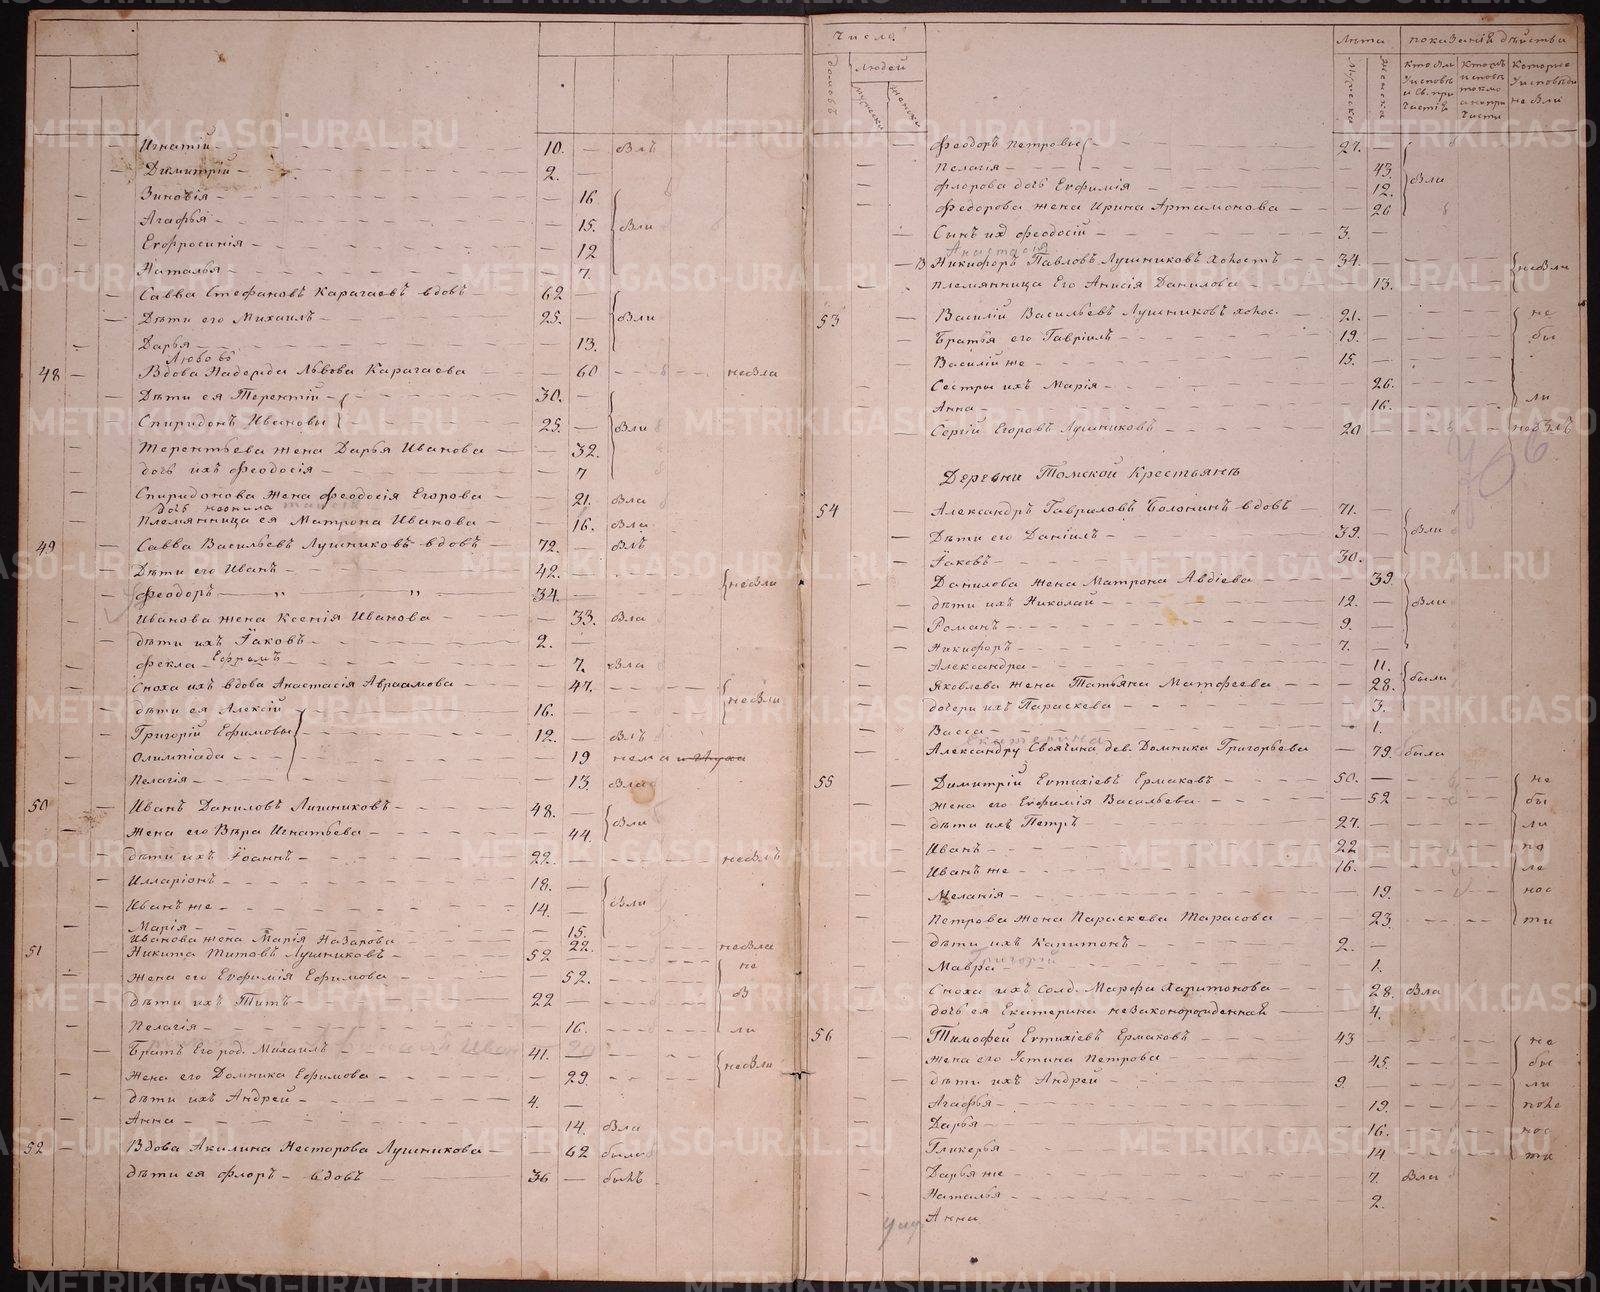 Игнатій 10. Былъ
Димитрій 2.
Зиновія 16
Агафья 15. Были
Евфросинія 12
Наталья 7.
Савва Стефановъ Карагаевъ вдовъ 62
Дѣти его Михаилъ 25. Были
Дарья 13.
Любовь
48 Вдова Надежда Львова Карагаева 60 небыла
Дѣти ея Терентій 30.
Спиридонъ Ивановы 25. Были
Терентьева жена Дарья Иванова 32.
дочь ихъ Феодосія 7
Спиридонова жена Феодосія Егорова 21. была
дочь неонила
Племянница ея Матрона Иванова 16. Была
49 Савва Васильевъ Лушниковъ вдовъ 72. Былъ
Дѣти его Иванъ 42. небыли
Феодоръ 34.
Иванова жена Ксенія Иванова 33. Была
дѣти ихъ Іаковъ 2.
Фекла Ефремъ 7. Была
Сноха ихъ вдова Анастасія Авраамова 47. небыли
дѣти ея Алексій 16.
Григорій Ефимовы 12. Былъ
Олимпіада 19 нема
Пелагія 13. Была
50 Иванъ Даниловъ Лушниковъ 48.
Жена его Вѣра Игнатьева 44. Были
дѣти ихъ Іоаннъ 22. небылъ
Илларіонъ 18.
Иванъ же 14. Были
Марія 15.
Иванова жена Марія Назарова 22. небыла
51 Никита Титовъ Лушниковъ 52
Жена его Евфимія Ефимова 52. не
дѣти ихъ Титъ 22 бы
Пелагія 16. ли
Братъ Его род. Михаилъ 41.
Жена его Домника Ефимова 29. небыли
дѣти ихъ Андрей 4.
Анна 14. Была
52 Вдова Акилина Несторова Лушникова 62 была
дѣти ея Флоръ вдовъ 36 былъ
Число Лѣта показанія дѣйства
домовъ людей мужеска женска Мужеска Женска
Феодоръ Петровы 27.
Пелагія 43. Были
Флорова дочь Евфимія 12.
Федорова жена Ирина Артамонова 20
Сынъ их Феодосій 3.
Анастасія
Никифоръ Павловъ Лушниковъ холостъ 34. небыли
племянница Его Анисія Данилова 13.
53 Василій Васильевъ Лушниковъ холос. 21. не
Братья его Гавріилъ 19. бы
Василій же 15.
Сестры ихъ Марія 26.
Анна 16. ли
Сергій Егоровъ Лушниковъ 20 небылъ
Деревни Томской Крестьянъ
54 Александръ Гавриловъ Болонинъ вдовъ 71.
Дѣти его Даніилъ 39. Были
Іаковъ 30.
Данилова жена Матрона Авдіева 39.
дѣти ихъ Николай 12. Были
Романъ 9.
Никифоръ 7.
Александра 11.
Яковлева жена Татьяна Матфеева 28. были
дочери ихъ Параскева 3.
Васса 1.
Екатерина
Александру Своячина дев. Домника Григорьева 79. была
55 Димитрій Евтихіевъ Ермаковъ 50. не
Жена его Евфимія Васильева 52 бы
дѣти ихъ Петръ 27. ли
Иванъ 22 по
Иванъ же 16. ле
Меланія 19. нос
Петрова жена Параскева Тарасова 23. ти
дѣти ихъ Капитонъ 2.
Григорій
Мавра 1.
Сноха ихъ Солд. Марфа Харитонова 28. Была
дочь ея Екатерина незаконорожденная 4.
56 Тимофей Евтихіевъ Ермаковъ 43 не
Жена его Устина Петрова 45. бы
дѣти ихъ Андрей 9. ли
Агафья 19. поле
Дарья 16. нос
Гликерья 14 ти
Дарья же 7. Была
Наталья 2.
Анна